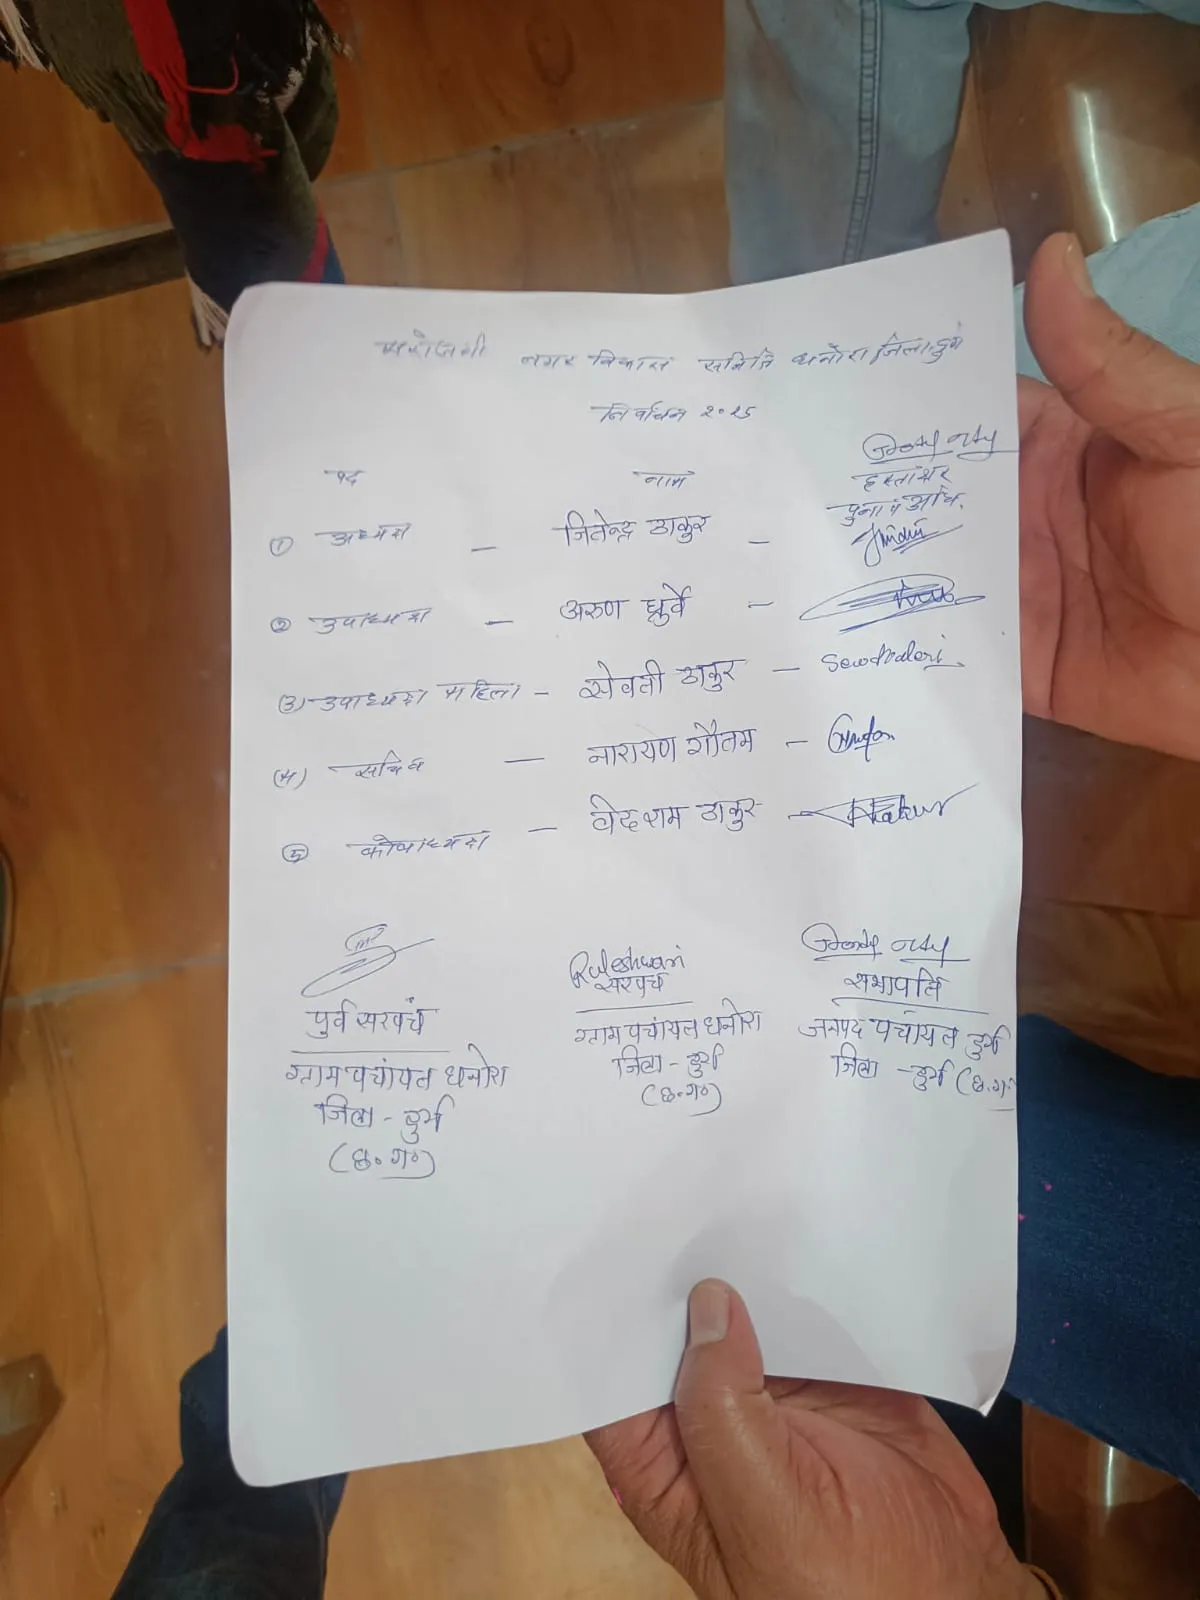 सरोजनी नगर विकास समिति धनोरा जिला दुर्ग
निर्वाचन २०२५
पद नाम हस्ताक्षर
चुनाव अधि.
① अध्यक्ष — जितेन्द्र ठाकुर —
② उपाध्यक्ष — अरुण ध्रुर्वे —
(3) उपाध्यक्ष महिला — सेवती ठाकुर —
(4) सचिव — नारायण गौतम —
⑤ कोषाध्यक्ष — वेदराम ठाकुर — Thakur
पुर्व सरपंच
ग्राम पचांयत धनोरा
जिला - दुर्ग
(छ॰ ग॰)
Rajeshwari
सरपंच
ग्राम पचांयत धनोरा
जिला - दुर्ग
(छ॰ग॰)
सभापति
जनपद पंचायत दुर्ग
जिला - दुर्ग (छ.ग